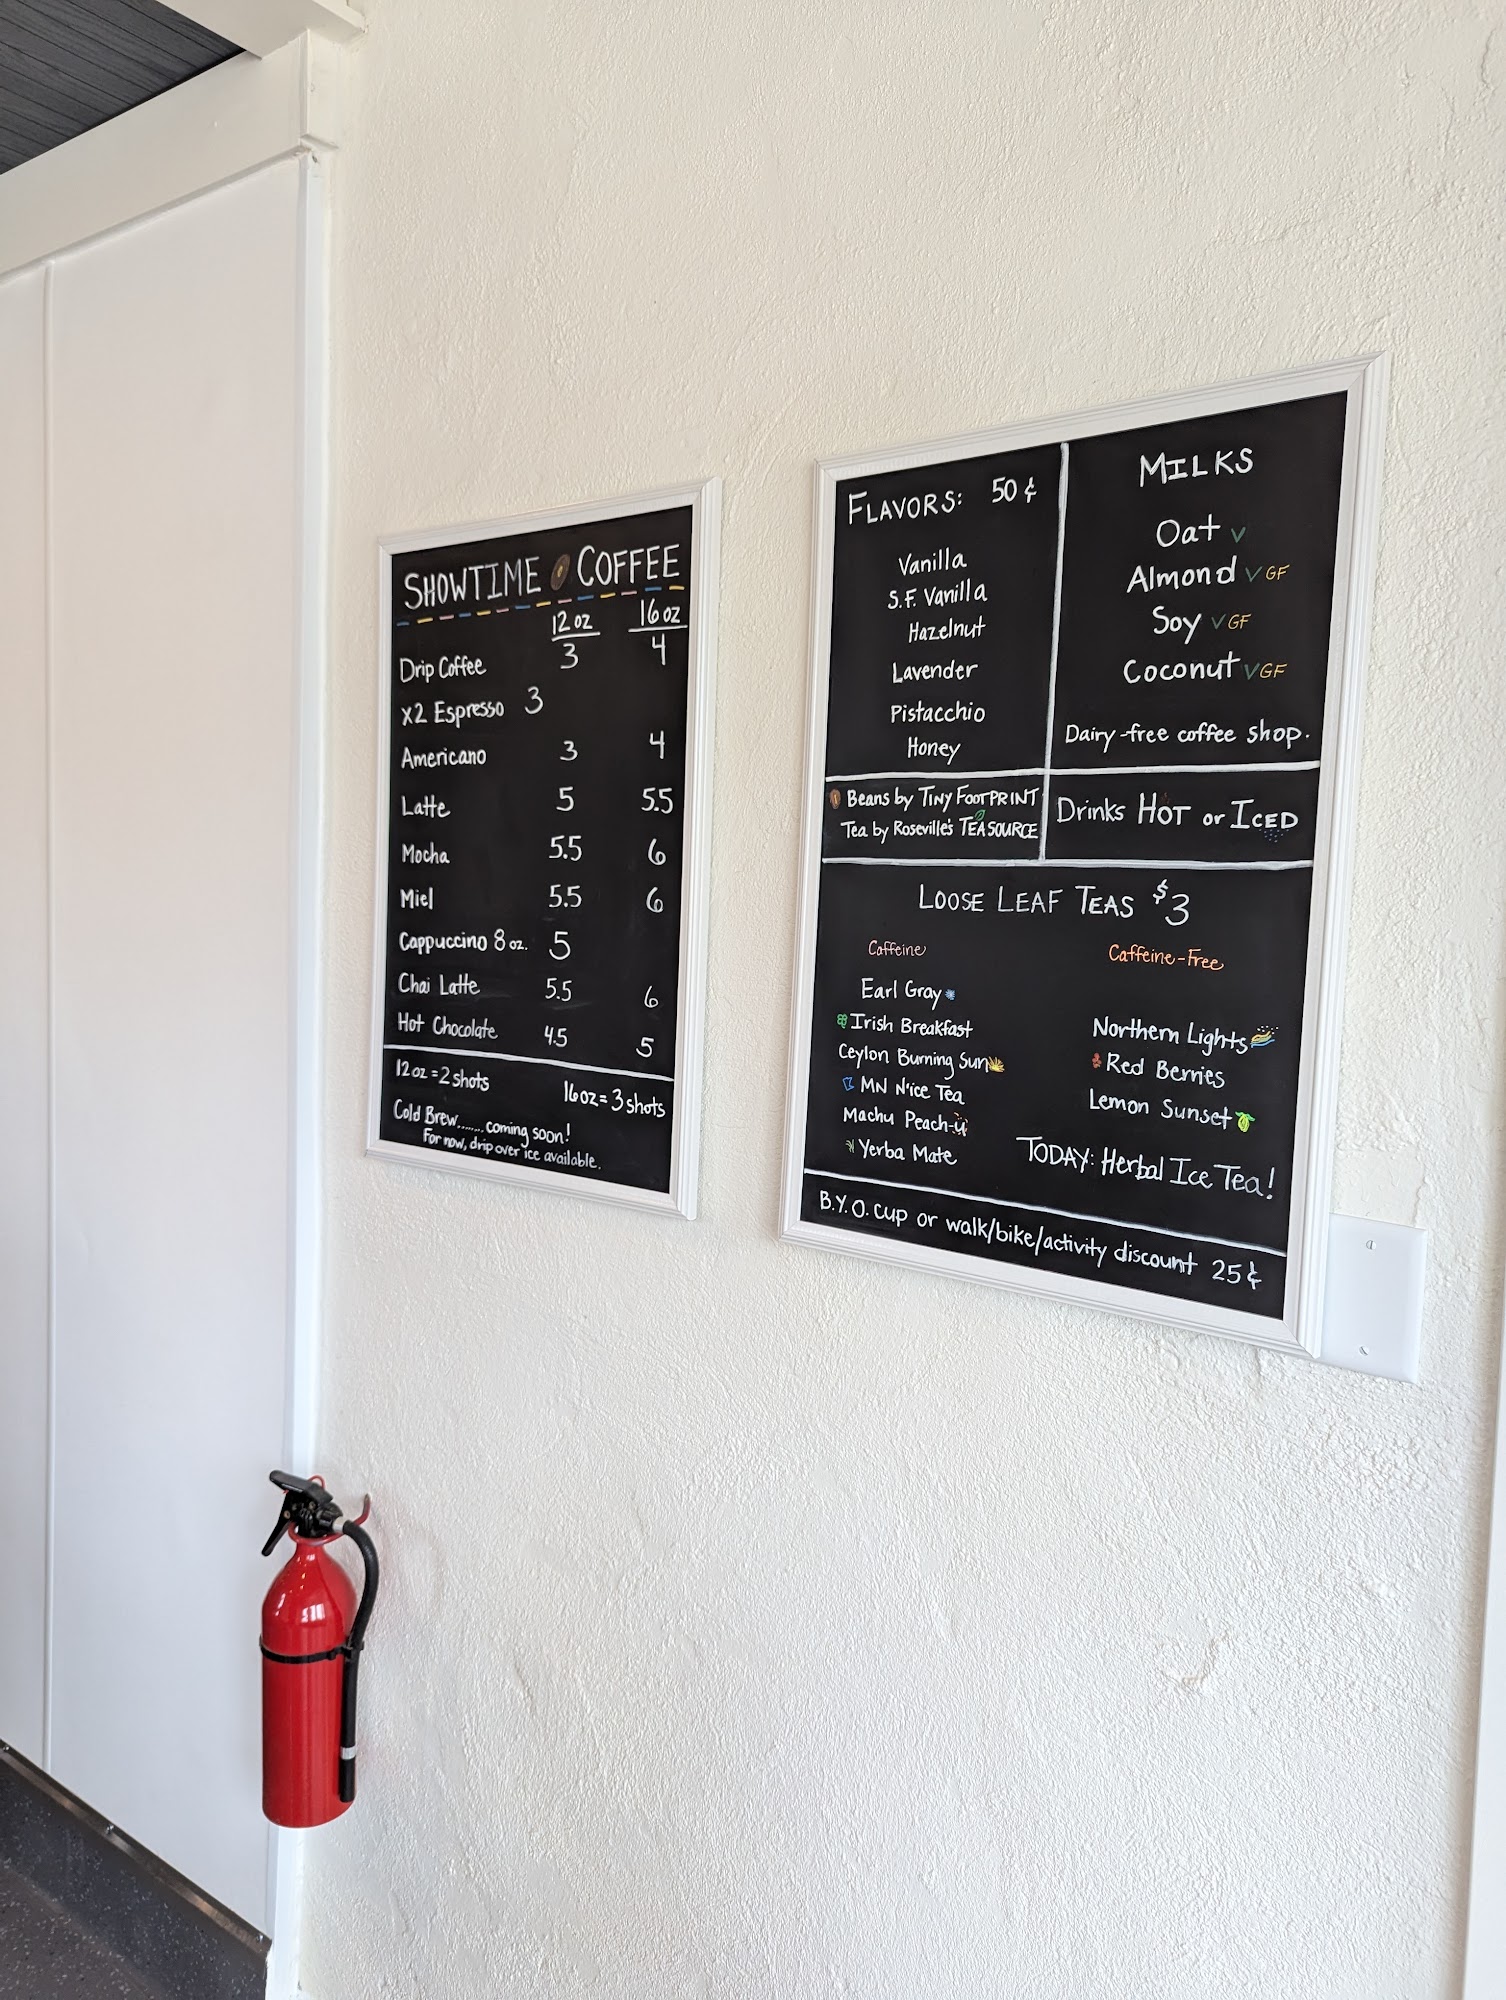 SHOWTIME COFFEE
12 oz 16 oz
Drip Coffee 3 4
x2 Espresso 3
Americano 3 4
Latte 5 5.5
Mocha 5.5 6
Miel 5.5 6
Cappuccino 8 oz. 5
Chai Latte 5.5 6
Hot Chocolate 4.5 5
12 oz = 2 shots 16 oz = 3 shots
Cold Brew....... coming soon!
For now, drip over ice available.
FLAVORS: 50¢
Vanilla
S.F. Vanilla
Hazelnut
Lavender
Pistacchio
Honey
MILKS
Oat V
Almond V GF
Soy V GF
Coconut V GF
Dairy-free coffee shop.
Beans by TINY FOOTPRINT
Tea by Roseville's TEASOURCE
Drinks HOT or ICED
LOOSE LEAF TEAS $3
Caffeine
Earl Gray
Irish Breakfast
Ceylon Burning Sun
MN N'ice Tea
Machu Peach-u
Yerba Mate
Caffeine-Free
Northern Lights
Red Berries
Lemon Sunset
TODAY: Herbal Ice Tea!
B.Y.O. cup or walk/bike/activity discount 25¢